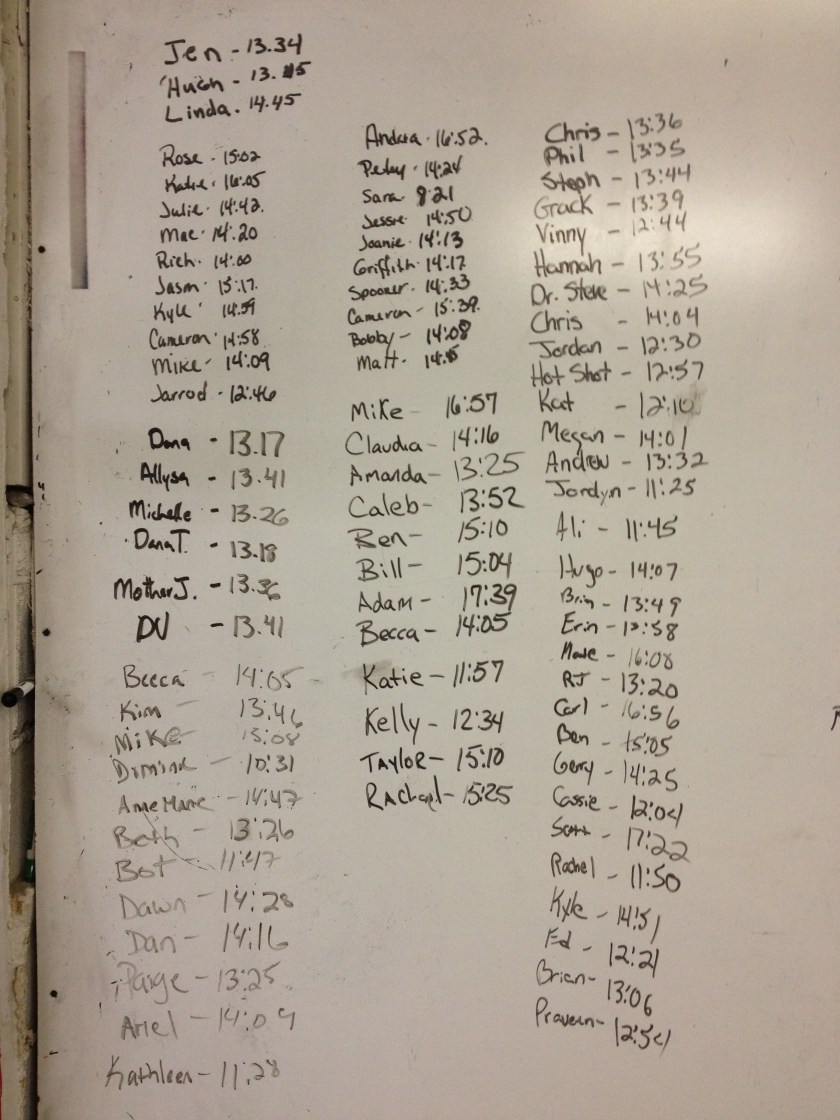 Jen - 13.34
Hugh - 13.45
Linda. 14.45
Rose - 15:02
Katie. 16:05
Julie. 14:42.
Mac. 14:20
Rich. 14:00
Jason. 15:17.
Kyle 14:59
Cameron. 14:58
Mike - 14:09
Jarrod. - 12:46
Dana - 13.17
Allysa - 13.41
Michelle - 13.26
Dana T. - 13.18
Mother J. - 13.36
DU - 13.41
Becca - 14:05
Kim - 13:46
Mike - 15:08
10:31
Anne Marie - 14:47
Beth - 13:26
Bot - 11:47
Dawn - 14:28
Dan - 14:16
Paige - 13:25
Ariel - 14:09
Kathleen - 11:28
Andrea. 16:52.
14:24
Sara 8:21
Jessie 14:50
Joanie. 14:13
Griffith. 14:17
Spooner. 14:33
Cameron - 15:39.
Bobby - 14:08
Matt.
Mike - 16:57
Claudia - 14:16
Amanda - 13:25
Caleb - 13:52
Ben - 15:10
Bill - 15:04
Adam - 17:39
Becca - 14:05
Katie - 11:57
Kelly - 12:34
TAYLOR - 15:10
RAchael - 15:25
Chris - 13:36
Phil - 13:35
Steph - 13:44
Grack - 13:39
Vinny - 12:44
Hannah - 13:55
Dr. Steve - 14:25
Chris - 14:04
Jordan - 12:30
Hot Shot - 12:57
Kat - 12:10
Megan - 14:01
Andrew - 13:32
Jordyn - 11:25
Ali - 11:45
Hugo - 14:07
Brin - 13:49
Erin - 12:58
16:08
RJ - 13:20
Carl - 16:56
Ben - 15:05
Gerry - 14:25
Cassie - 12:04
Scott - 17:22
Rachel - 11:50
Kyle - 14:51
Ed - 12:21
Brian - 13:06
Praveen - 12:54